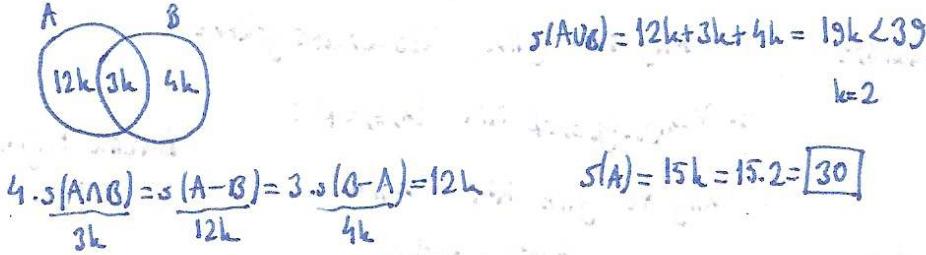 A B
12k 3k 4k
s(A∪B) = 12k+3k+4k = 19k < 39
k=2
4.s(A∩B) = s(A-B) = 3.s(B-A) = 12k
3k 12k 4k
s(A) = 15k = 15.2 = 30